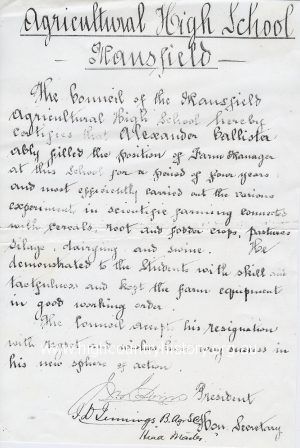 Agricultural High School
— Mansfield —
The Council of the Mansfield
Agricultural High School hereby
certifies that Alexander Ballister
ably filled the position of Farm Manager
at this School for a period of four years
and most efficiently carried out the various
experiments in scientific farming connected
with cereals, root and fodder crops, pastures
silage, dairying and swine. He
demonstrated to the Students with skill and
tactfulness and kept the farm equipment
in good working order.
The Council accept his resignation
with regret and wish him every success in
his new sphere of action.
President
J D Jennings B. Agr Sc Hon. Secretary
Head Master